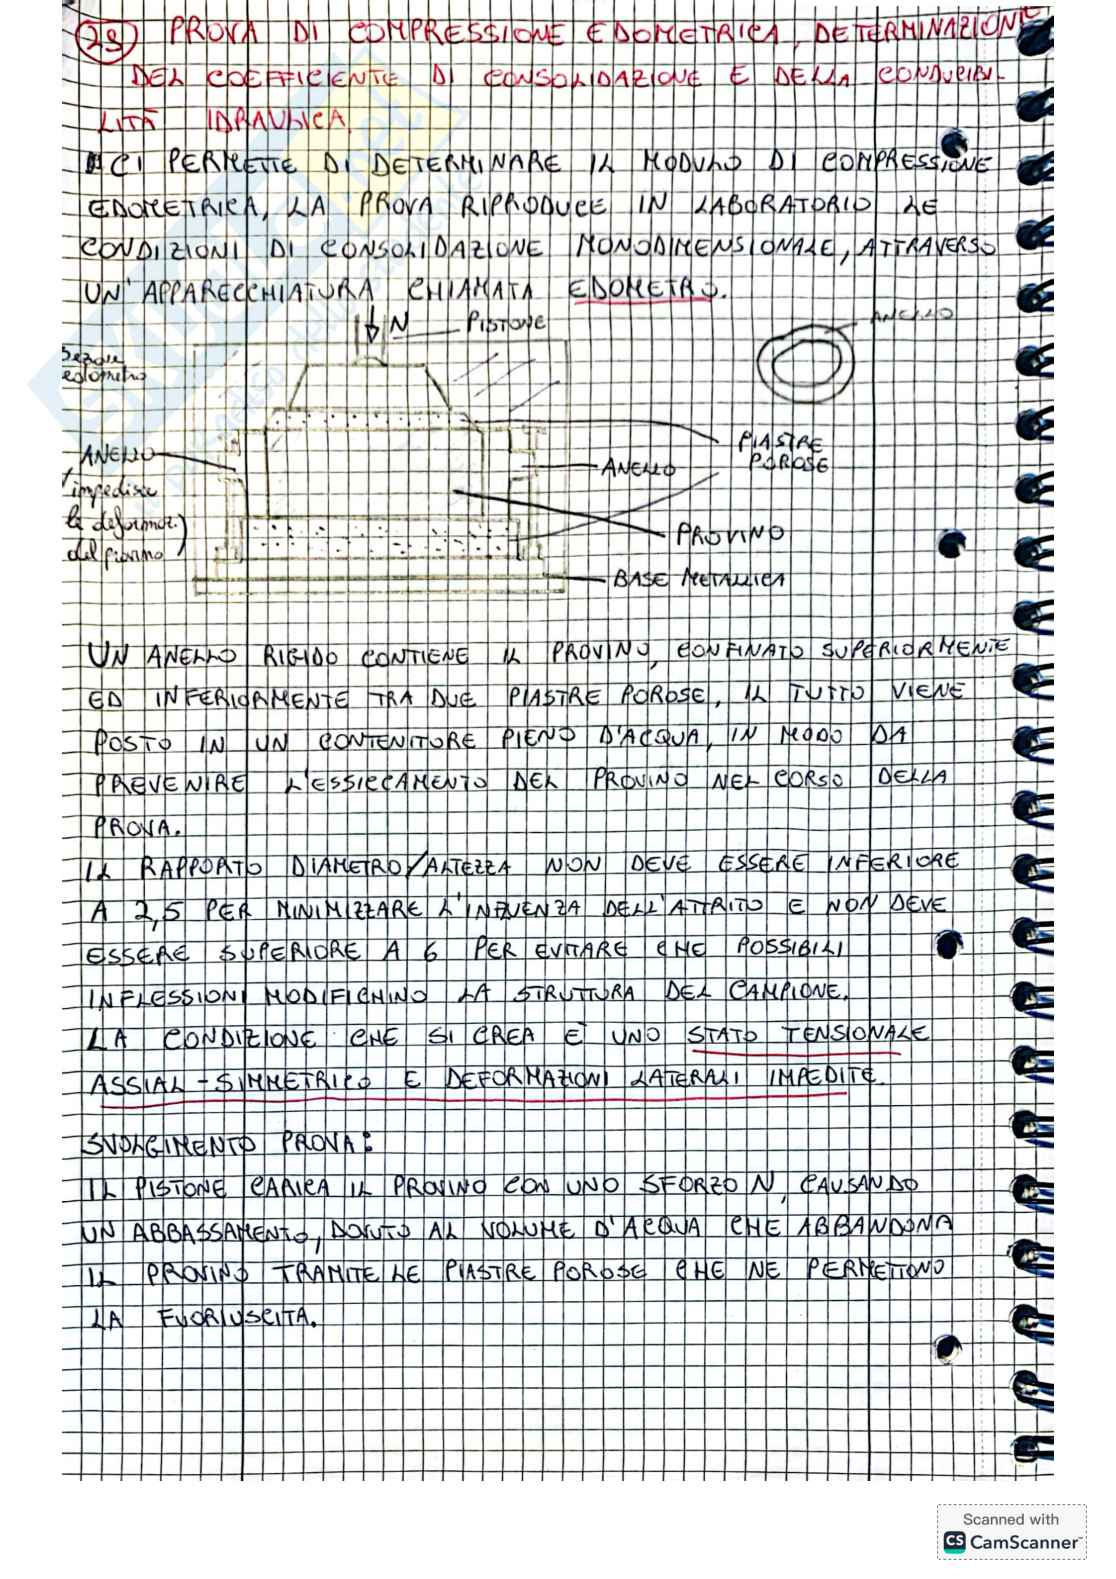 29 PROVA DI COMPRESSIONE EDOMETRICA, DETERMINAZIONE
DEL COEFFICIENTE DI CONSOLIDAZIONE E DELLA CONDUCIBI-
LITÀ IDRAULICA.
CI PERMETTE DI DETERMINARE IL MODULO DI COMPRESSIONE
EDOMETRICA, LA PROVA RIPRODUCE IN LABORATORIO LE
CONDIZIONI DI CONSOLIDAZIONE MONODIMENSIONALE, ATTRAVERSO
UN'APPARECCHIATURA CHIAMATA EDOMETRO.
N PISTONE
ANELLO
edometro
PIASTRE
POROSE
ANELLO
ANELLO
impedisce
la deformaz.
del provino
PROVINO
BASE METALLICA
UN ANELLO RIGIDO CONTIENE IL PROVINO, CONFINATO SUPERIORMENTE
ED INFERIORMENTE TRA DUE PIASTRE POROSE, IL TUTTO VIENE
POSTO IN UN CONTENITORE PIENO D'ACQUA, IN MODO DA
PREVENIRE L'ESSICCAMENTO DEL PROVINO NEL CORSO DELLA
PROVA.
IL RAPPORTO DIAMETRO/ALTEZZA NON DEVE ESSERE INFERIORE
A 2,5 PER MINIMIZZARE L'INFLUENZA DELL'ATTRITO E NON DEVE
ESSERE SUPERIORE A 6 PER EVITARE CHE POSSIBILI
INFLESSIONI MODIFICHINO LA STRUTTURA DEL CAMPIONE.
LA CONDIZIONE CHE SI CREA È UNO STATO TENSIONALE
ASSIAL-SIMMETRICO E DEFORMAZIONI LATERALI IMPEDITE.
SVOLGIMENTO PROVA:
IL PISTONE CARICA IL PROVINO CON UNO SFORZO N, CAUSANDO
UN ABBASSAMENTO, DOVUTO AL VOLUME D'ACQUA CHE ABBANDONA
IL PROVINO TRAMITE LE PIASTRE POROSE CHE NE PERMETTONO
LA FUORIUSCITA.
Scanned with
CS CamScanner